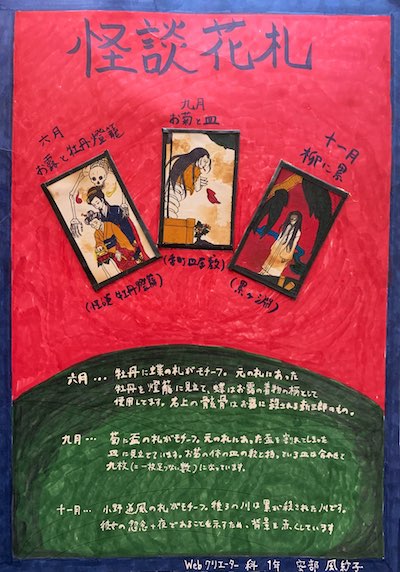 怪談花札
六月
お露と牡丹燈籠
九月
お菊と皿
十一月
柳に累
(怪談 牡丹燈籠)
(番町皿屋敷)
(累ヶ淵)
六月… 牡丹に蝶の札がモチーフ。元の札にあった
牡丹を燈籠に見立て、蝶はお露の着物の柄として
使用してます。右上の骸骨はお露に殺される新三郎のもの。
九月… 菊に盃の札がモチーフ。元の札にあった盃を割れてしまった
皿に見立てています。お菊の体の皿の数と持っている皿は合わせて
九枚(=一枚足りない数)になっています。
十一月… 小野道風の札がモチーフ。後ろの川は累が殺された川です。
彼女の怨念+夜であることを示すため、背景を赤くしています
Webクリエーター科 1年 安部 風紗子